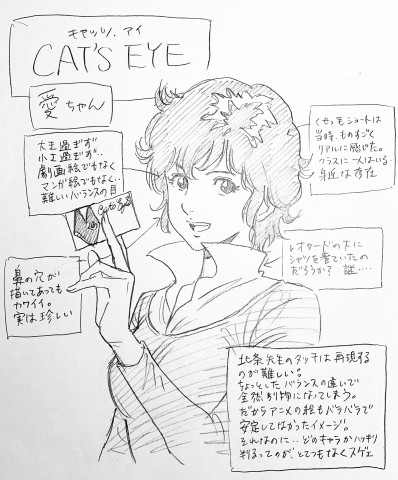 キャッツ・アイ
CAT'S EYE
愛ちゃん
大き過ぎず
小さ過ぎず..
劇画絵でもなく
マンガ絵でもなく..
難しいバランスの目
くせっ毛ショートは
当時、ものすごく
リアルに感じた。
クラスに一人はいる…
身近な存在
Cat's Eye
レオタードの下に
シャツを着ていたの
だろうか? 謎….
鼻の穴が
描いてあっても
カワイイ。
実は珍しい
北条先生のタッチは再現する
のが難しい。
ちょっとしたバランスの違いで
全然別物になってしまう。
だからアニメの絵もバラバラで
安定してなかったイメージ。
それなのに…どのキャラかハッキリ
判るってのが、とてつもなくスゲェ